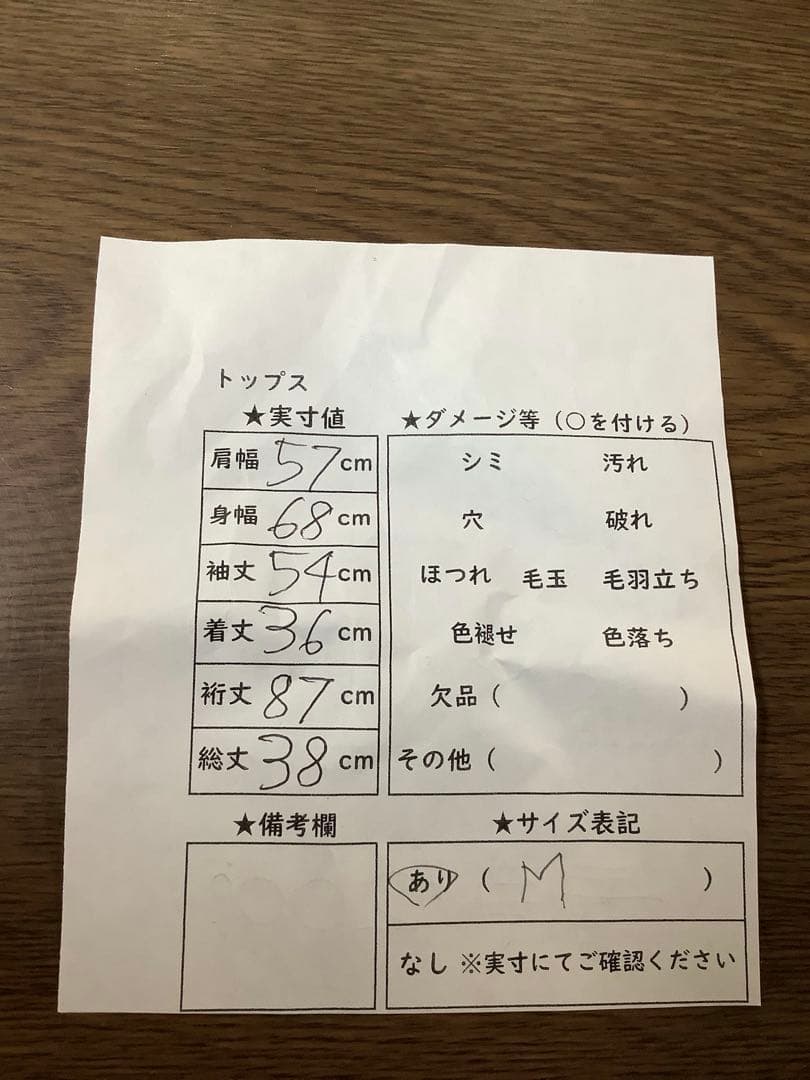 トップス
★実寸値
肩幅 57cm
身幅 68cm
袖丈 54cm
着丈 36cm
裄丈 87cm
総丈 38cm
★ダメージ等（○を付ける）
シミ 汚れ
穴 破れ
ほつれ 毛玉 毛羽立ち
色褪せ 色落ち
欠品（ ）
その他（ ）
★備考欄
★サイズ表記
あり（ M ）
なし ※実寸にてご確認ください